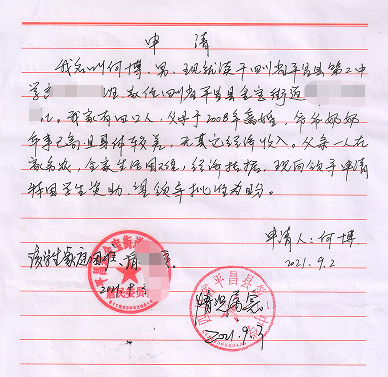 申请
我名叫何博，男，现就读于四川省平昌县第二中
学 现家住四川省平昌县金宝街道
。我家有四口人，父母于2008年离婚，爷爷奶奶
年事已高且身体较差，无其它经济收入。父亲一人在
家务农，全家生活困难，经济拮据，现向领导申请
特困学生资助，望领导批准为盼。
申请人：何博
2021.9.2
该学生家庭困难，请
居民委员
情况属实。
2021.9.3